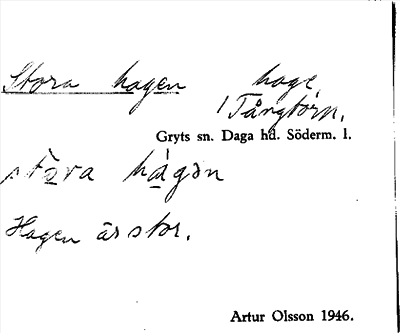 Stora hagen hage,
/ Tångtorn.
Gryts sn. Daga hd. Söderm. l.
stòra hágən
Hagen är stor.
Artur Olsson 1946.